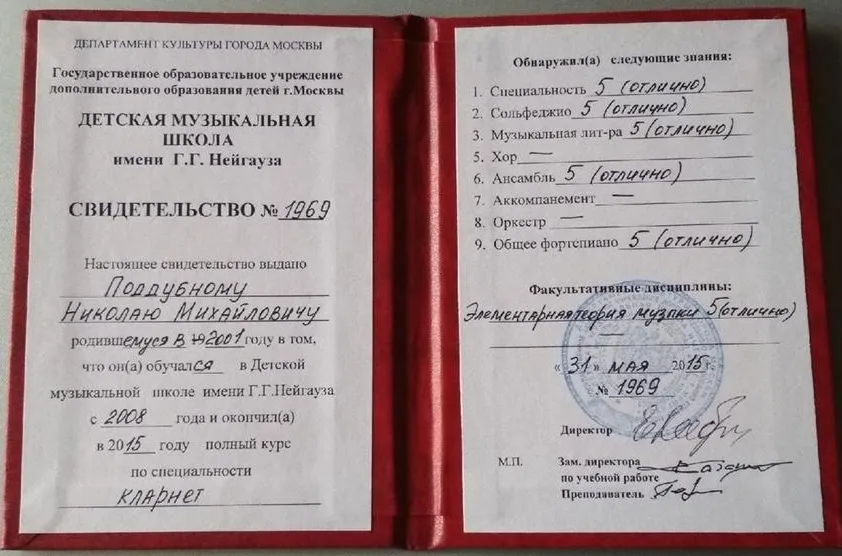 ДЕПАРТАМЕНТ КУЛЬТУРЫ ГОРОДА МОСКВЫ
Государственное образовательное учреждение
дополнительного образования детей г.Москвы
ДЕТСКАЯ МУЗЫКАЛЬНАЯ
ШКОЛА
имени Г.Г. Нейгауза
СВИДЕТЕЛЬСТВО № 1969
Настоящее свидетельство выдано
Поддубному
Николаю Михайловичу
родившемуся в 19 2001 году в том,
что он(а) обучался в Детской
музыкальной школе имени Г.Г.Нейгауза
с 2008 года и окончил(а)
в 2015 году полный курс
по специальности
кларнет
Обнаружил(а) следующие знания:
1. Специальность 5 (отлично)
2. Сольфеджио 5 (отлично)
3. Музыкальная лит-ра 5 (отлично)
5. Хор —
6. Ансамбль 5 (отлично)
7. Аккомпанемент —
8. Оркестр —
9. Общее фортепиано 5 (отлично)
Факультативные дисциплины:
Элементарная теория музыки 5 (отлично)
—
« 31 » мая 2015 г.
№ 1969
Директор
М.П. Зам. директора
по учебной работе
Преподаватель